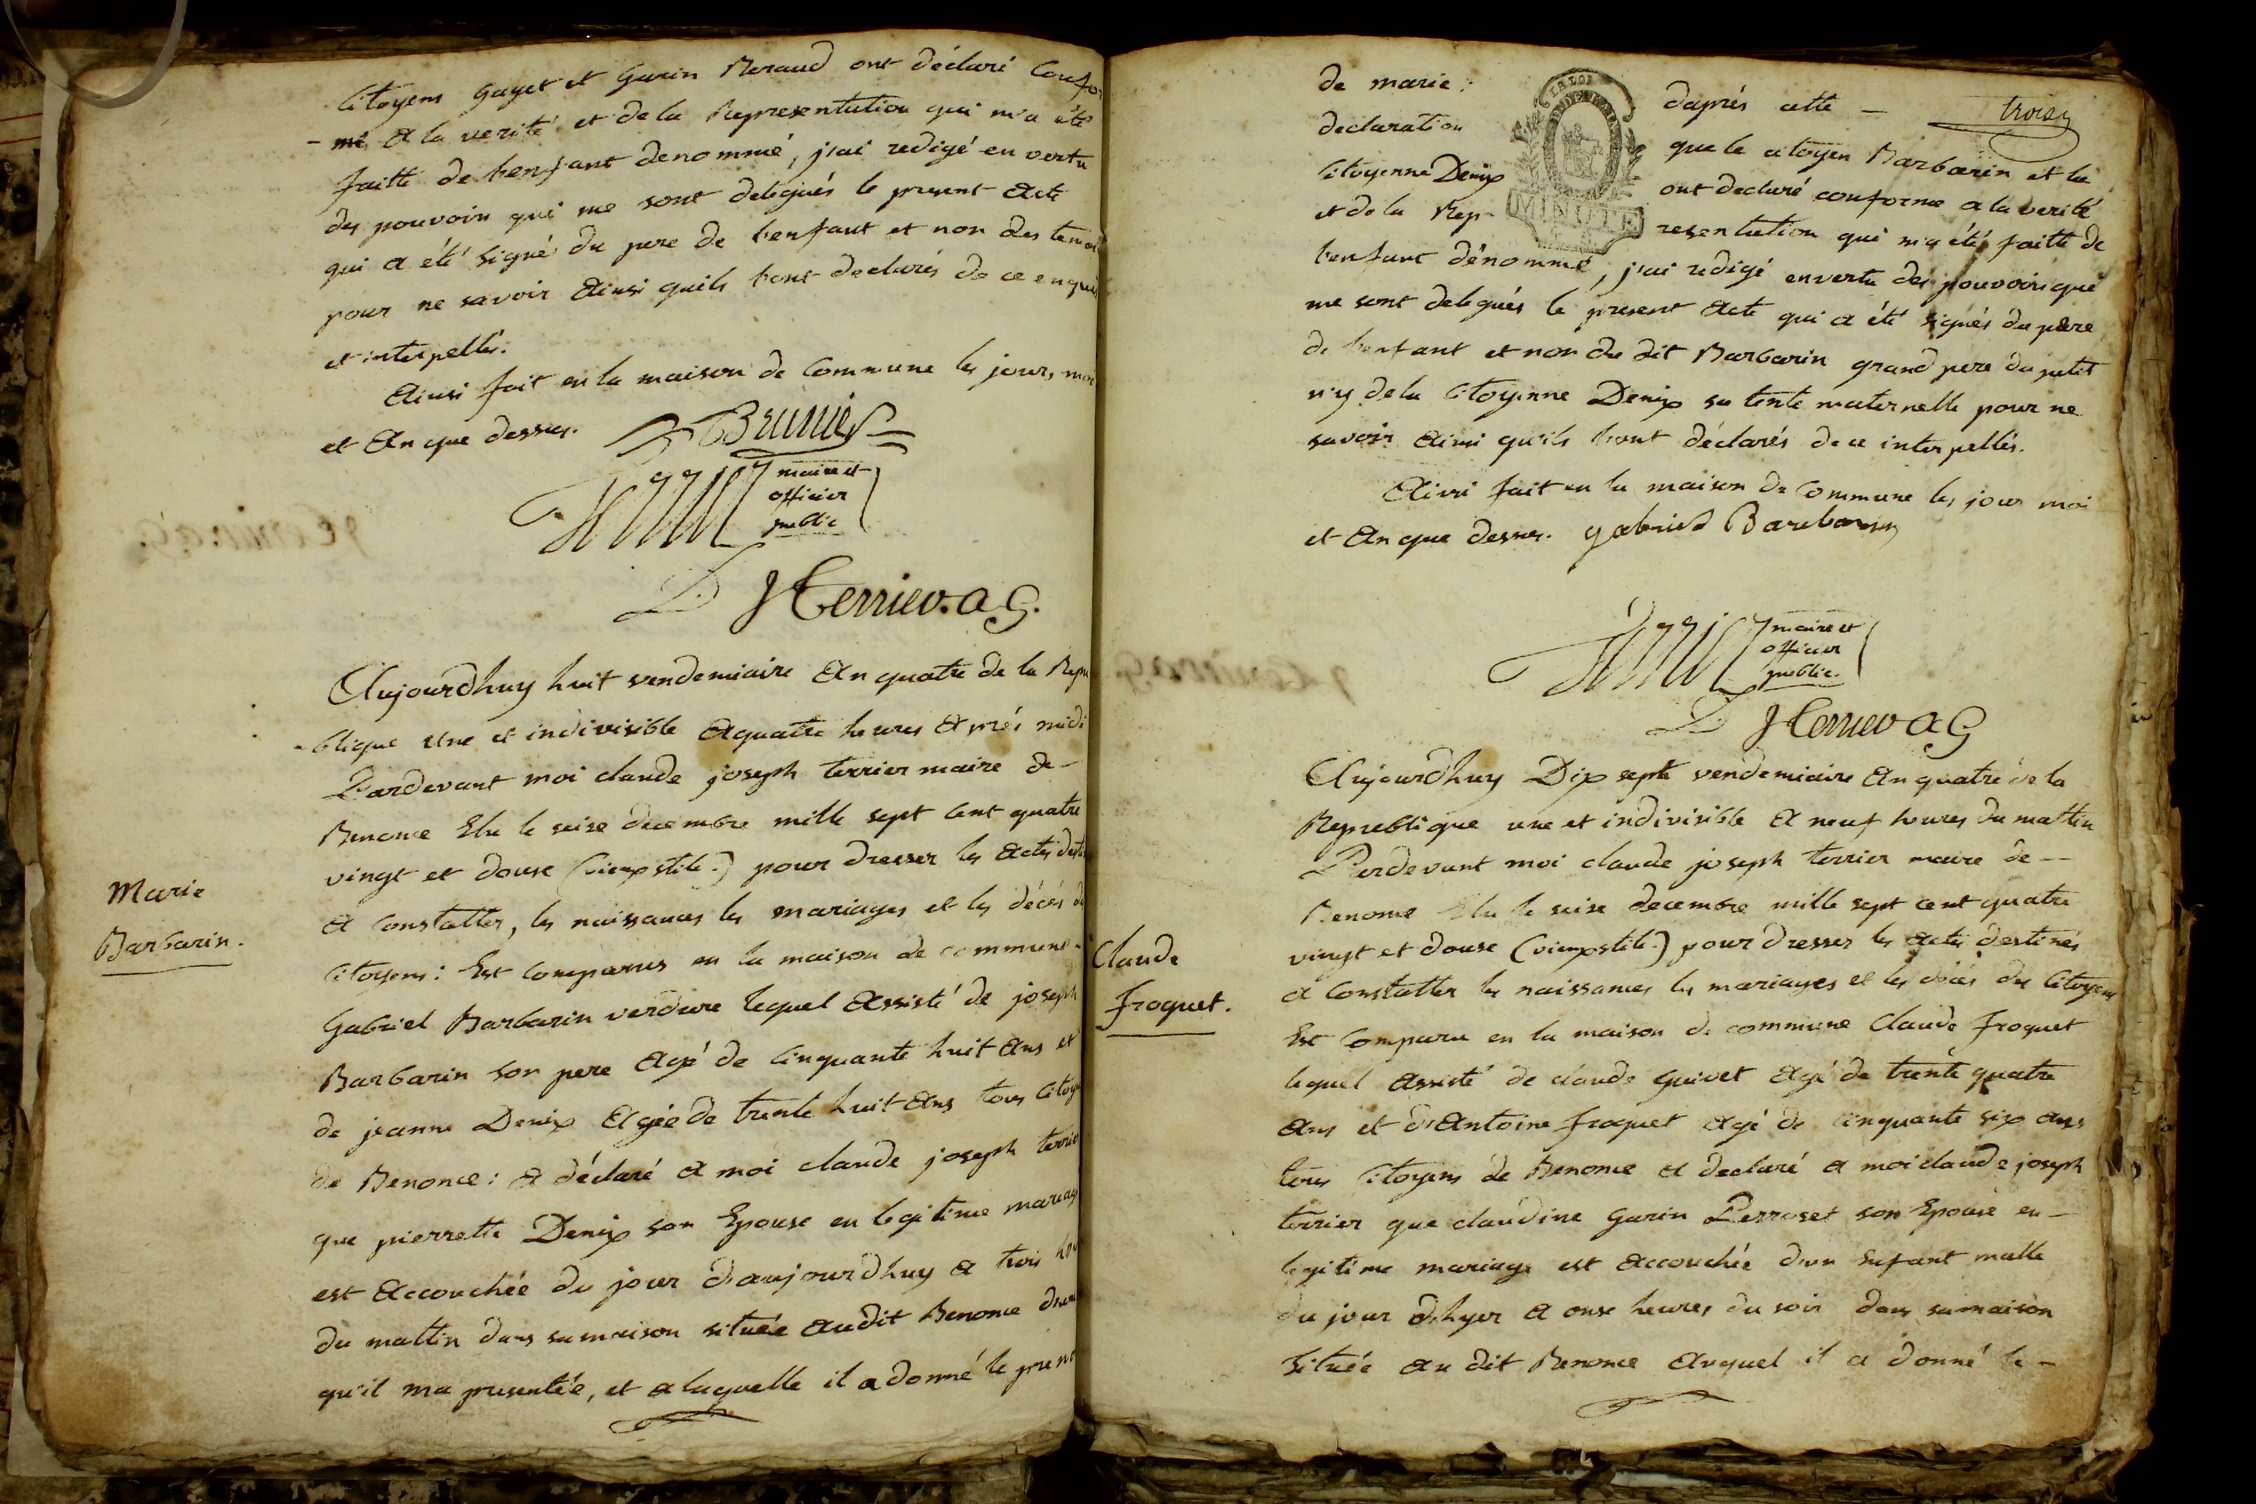 Citoyens Gayet et Garin Reraud ont déclaré Confor
- mé a la verité et de la Representation qui m'a été
faitte de l'enfant denommé, j'ai redigé en vertu
des pouvoirs qui me sont delegués le present acte
qui a été signé du pere de l'enfant et non des temoi
pour ne savoir ainsi quils l'ont declarés de ce enquis
et interpellés.
Ainsi fait en la maison de Commune les jours, moi
et an que dessus. Brunier
maire et
officier
public
Terrier. a G.
Aujourdhuy huit vendemiaire an quatre de la Repu
-blique une et indivisible a quatre heures après midi
Pardevant moi claude joseph terrier maire de -
Benonce Elu le seise decembre mille sept cent quatre
vingt et douse (vieux stile.) pour dresser les actes desti
a Constatter, les naissances les mariages et les décés de
Citoyens : Est Comparus en la maison de commune -
Marie
Barbarin.
Gabriel Barbarin verdure lequel assisté de joseph
Barbarin son pere agé de Cinquante huit ans et
de jeanne Denix agée de trente huit ans tous Citoye
de Benonce : a déclaré a moi claude joseph terrier
que pierrette Denix son Epouse en legitime mariag
est accouchée du jour d'aujourdhuy a trois heu
du mattin dans sa maison située audit Benonce d'une
qu'il ma presentée, et a laquelle il a donné le preno
de marie : daprés cette -
troisy
declaration que le citoyen Barbarin et la
Citoyenne Denix ont declaré conforme a la verité
et de la Rep- resentation qui m'a été faitte de
MINUTE
l'enfant dénommé, j'ai redigé en vertu des pouvoirs qui
me sont delegués le present acte qui a été signés du pere
de l'enfant et non du dit Barbarin grand pere du petit
n'y de la Citoyenne Denix sa tente maternelle pour ne
savoir ainsi qu'ils l'ont déclarés de ce interpellés.
Ainsi fait en la maison de Commune les jour moi
et an que dessus. gabriel Barebarin
maire et
officier
public.
Terrier a G
Aujourdhuy Dix septe vendemiaire an quatre de la
Republique une et indivisible a neuf heures du mattin
Pardevant moi claude joseph terrier maire de --
Benonce Elu le seise decembre mille sept cent quatre
vingt et douse (vieux stile.) pour dresser les actes destinés
a Constatter les naissances les mariages et les décés des Citoyens
Claude
froquet.
Est Comparu en la maison de commune Claude froquet
lequel assisté de claude Guivet agé de trente quatre
ans et d'Antoine froquet agé de Cinquante six ans
tous Citoyens de Benonce a declaré a moi claude joseph
terrier que claudine Garin Perroset son Epouse en -
legitime mariage est accouchée d'un Enfant malle
du jour d'hyer a onse heures du soir dans sa maison
située au dit Benonce auquel il a donné le -